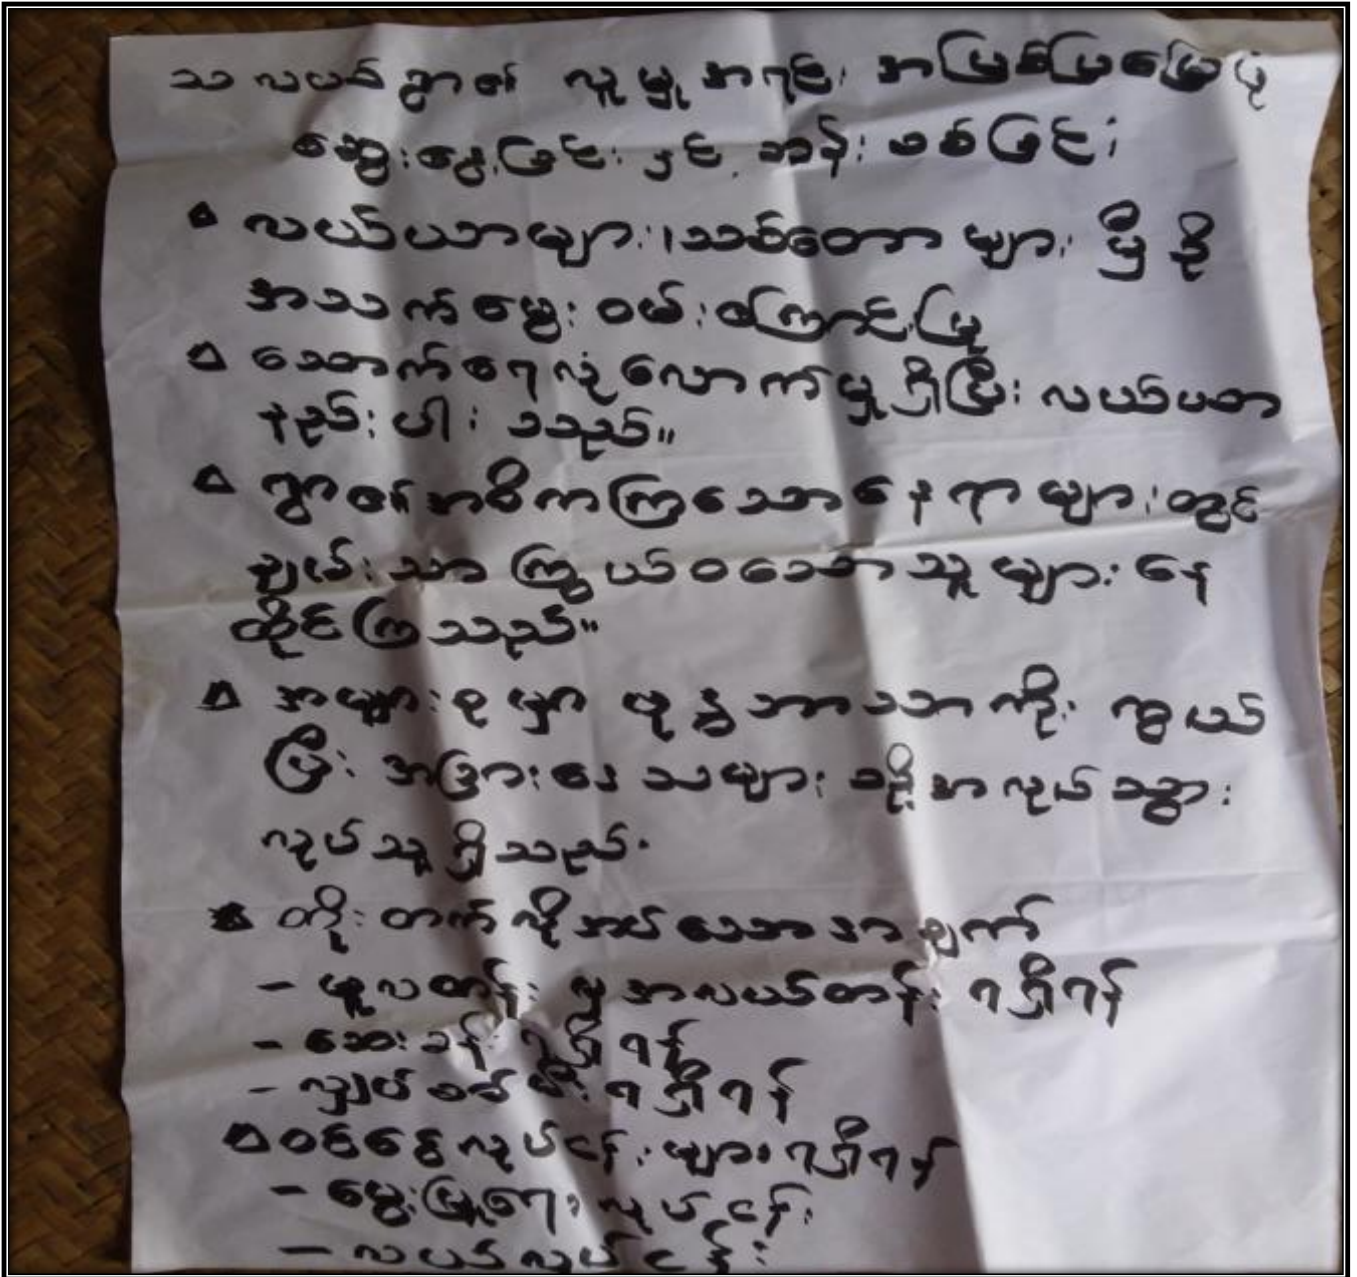 သလယ်ရွာ၏ လူမှုအရင်း အမြစ်ပြမြေပုံ
ဆွေးနွေးခြင်း နှင့် ဆန်းစစ်ခြင်း
လယ်ယာများ၊ သစ်တောများ မှီခို
အသက်မွေး ဝမ်းကြောင်းပြု
သောက်ရေလုံလောက်မှုရှိပြီး လယ်ယာ
နည်းပါး သည်။
ရွာ၏အဓိကကြသောနေရာများတွင်
ချမ်းသာကြွယ်ဝသောသူများ နေ
ထိုင်ကြသည်။
အများစုမှာ ဗုဒ္ဓဘာသာကိုး ကွယ်
ပြီး အခြားဒေသများ သို့အလုပ်သွား
လုပ်သူရှိသည်.
တိုးတက်လိုအပ်သောအချက်
- မူလတန်းလွန်အလယ်တန်း ရရှိရန်
- ဆေးခန်းရရှိရန်
- လျှပ်စစ်မီးရရှိရန်
ဝင်ငွေလုပ်ငန်းများရရှိရန်
- မွေးမြူရေးလုပ်ငန်း
- လယ်လုပ်ငန်း